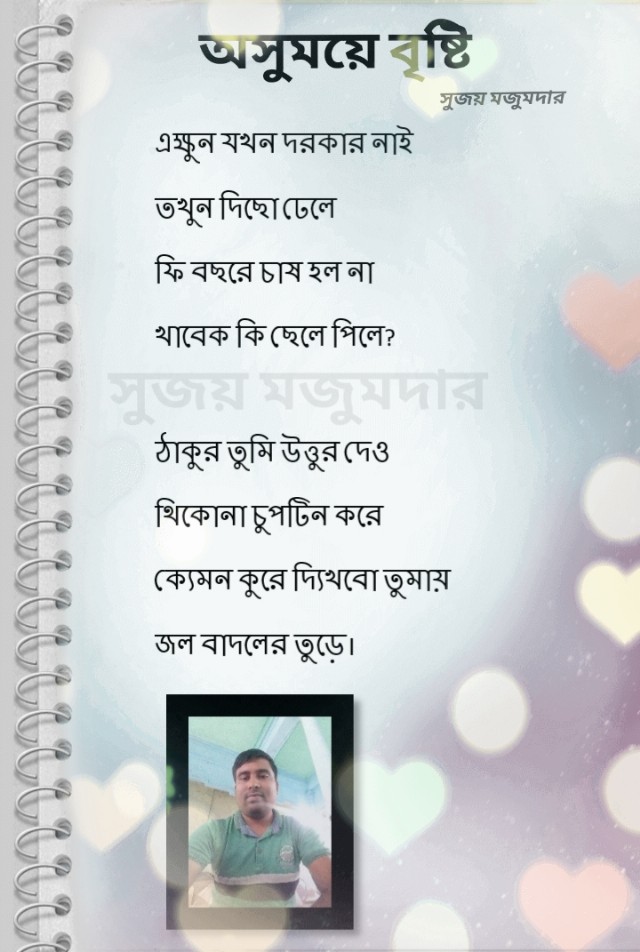 অসুময়ে বৃষ্টি
সুজয় মজুমদার
এক্ষুন যখন দরকার নাই
তখুন দিছো ঢেলে
ফি বছরে চাষ হল না
খাবেক কি ছেলে পিলে?
সুজয় মজুমদার
ঠাকুর তুমি উত্তুর দেও
থিকোনা চুপটিন করে
ক্যেমন কুরে দ্যিখবো তুমায়
জল বাদলের তুড়ে।